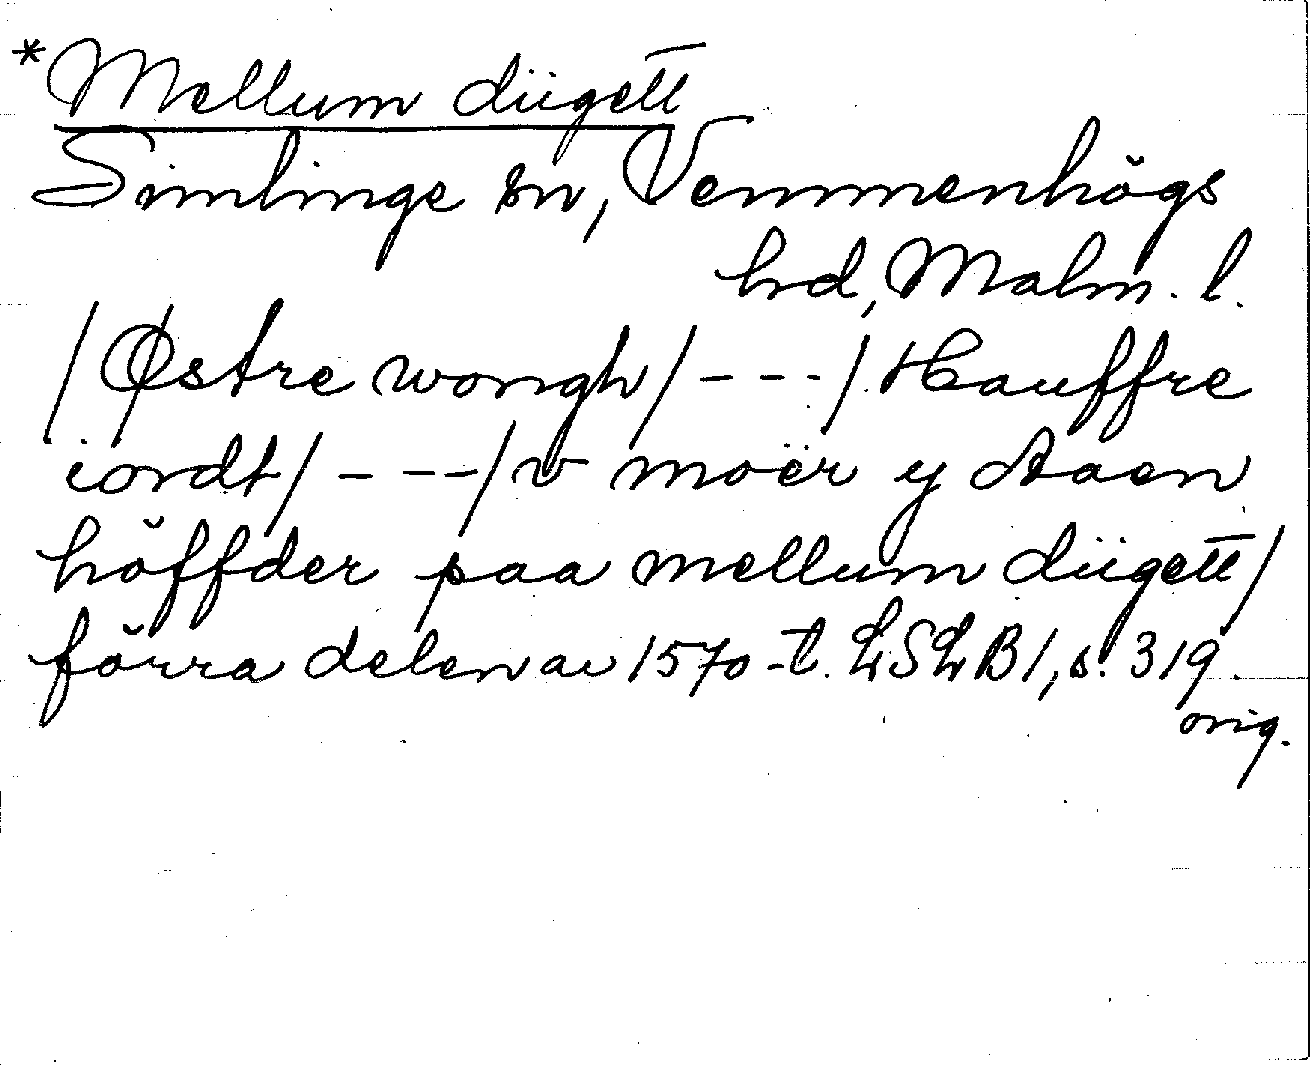 *Mellum diigett
Simlinge sn, Vemmenhögs
hd, Malm. l.
/Østre wongh/ - - - / Hauffre
iordt/ - - - / v moër y Aaen
höffder paa mellum diigett/
förra delen av 1570-t. LSLB1, s. 319.
orig.